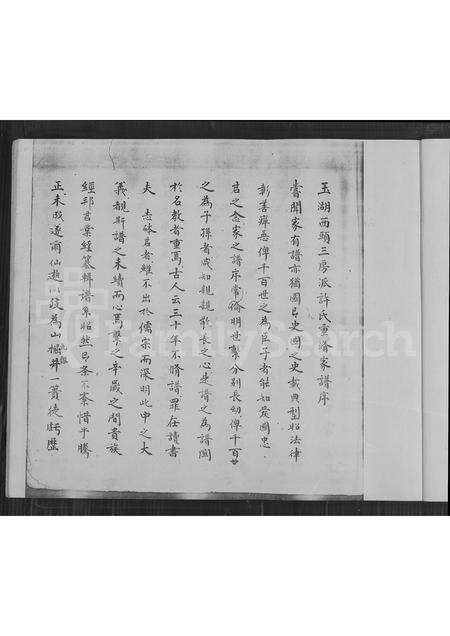 玉湖西頭三房派許氏重脩家譜序
嘗聞家有譜亦猶國㠯史國之史載典型昭法律
彰善癉惡俾千百世之為臣子者皆知愛國忠
君之念家之譜序常倫明世繫分别長幼俾千百世
之為子孫者咸知親親敬長之心是譜之為譜関
於名教者重焉古人云三十年不脩譜罪在讀書
夫 君者雖不出於儒宗而深明此中之大
義覩斯譜之未續而心焉繫之辛歲之間貴族
經邦君業經纂輯譜㠯昭然㠯条不紊惜乎騰
正未成遂爾仙逝以致為山掘井一簣徒虧歷
九
FamilySearch